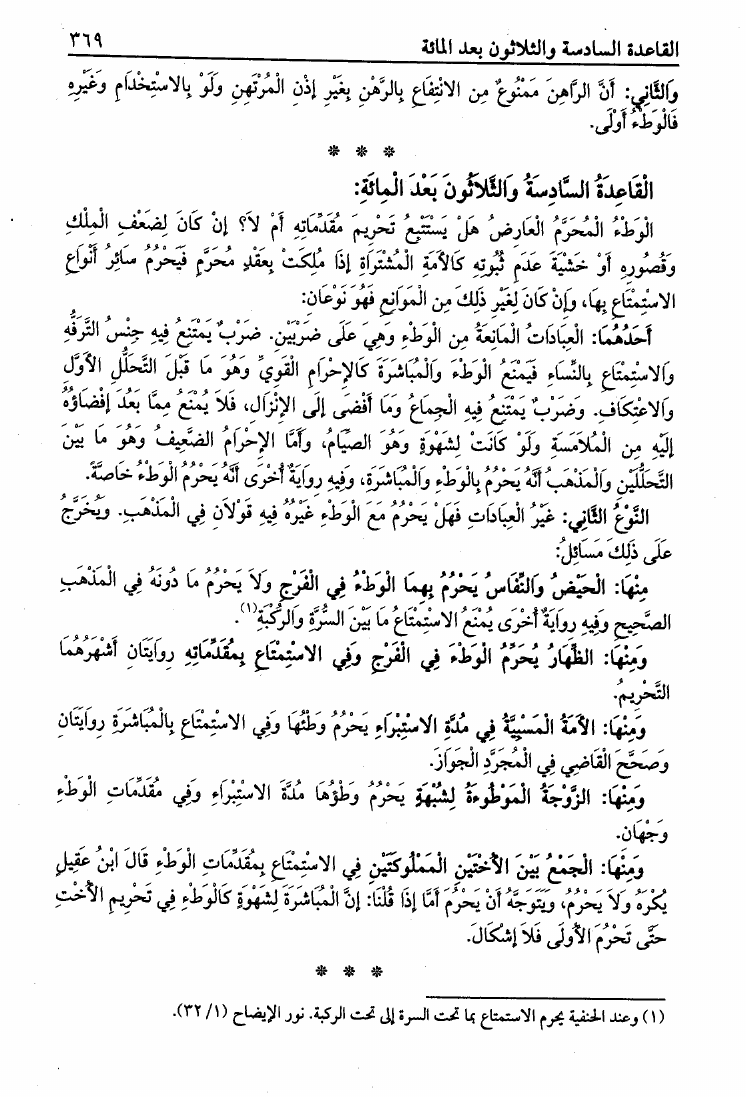 القاعدة السادسة والثلاثون بعد المائة ٣٦٩
وَالثَّانِي: أَنَّ الرَّاهِنَ مَمْنُوعٌ مِن الانْتِفَاعِ بِالرَّهْنِ بِغَيْرِ إذْنِ الْمُرْتَهِنِ وَلَوْ بِالاسْتِخْدَامِ وَغَيْرِهِ
فَالْوَطْءُ أَوْلَى.
* * *
الْقَاعِدَةُ السَّادِسَةُ وَالثَّلاَثُونَ بَعْدَ الْمِائَةِ:
الْوَطْءُ الْمُحَرَّمُ الْعَارِضُ هَلْ يَسْتَتْبِعُ تَحْرِيمَ مُقَدِّمَاتِهِ أَمْ لاَ؟ إنْ كَانَ لِضَعْفِ الْمِلْكِ
وَقُصُورِهِ أَوْ خَشْيَةَ عَدَمِ ثُبُوتِهِ كَالأَمَةِ الْمُشْتَرَاةِ إذَا مُلِكَتْ بِعَقْدٍ مُحَرَّمٍ فَيَحْرُمُ سَائِرُ أَنْوَاعِ
الاسْتِمْتَاعِ بِهَا، وَإِنْ كَانَ لِغَيْرِ ذَلِكَ مِن الْمَوَانِعِ فَهُوَ نَوْعَانِ:
أَحَدُهُمَا: الْعِبَادَاتُ الْمَانِعَةُ مِن الْوَطْءِ وَهِيَ عَلَى ضَرْبَيْنِ. ضَرْبٌ يَمْتَنِعُ فِيهِ جِنْسُ التَّرَفُّهِ
وَالاسْتِمْتَاعِ بِالنِّسَاءِ فَيَمْنَعُ الْوَطْءَ وَالْمُبَاشَرَةَ كَالإحْرَامِ الْقَوِيِّ وَهُوَ مَا قَبْلَ التَّحَلُّلِ الأَوَّلِ
وَالاعْتِكَافِ. وَضَرْبٌ يَمْتَنِعُ فِيهِ الْجِمَاعُ وَمَا أَفْضَى إلَى الإنْزَالِ، فَلاَ يُمْنَعُ مِمَّا بَعُدَ إفْضَاؤُهُ
إلَيْهِ مِن الْمُلاَمَسَةِ وَلَوْ كَانَتْ لِشَهْوَةٍ وَهُوَ الصِّيَامُ، وَأَمَّا الإحْرَامُ الضَّعِيفُ وَهُوَ مَا بَيْنَ
التَّحَلُّلَيْنِ وَالْمَذْهَبُ أَنَّهُ يَحْرُمُ بِالْوَطْءِ وَالْمُبَاشَرَةِ، وَفِيهِ رِوَايَةٌ أُخْرَى أَنَّهُ يَحْرُمُ الْوَطْءُ خَاصَّةً.
النَّوْعُ الثَّانِي: غَيْرُ الْعِبَادَاتِ فَهَلْ يَحْرُمُ مَعَ الْوَطْءِ غَيْرُهُ فِيهِ قَوْلاَنِ فِي الْمَذْهَبِ. وَيُخَرَّجُ
عَلَى ذَلِكَ مَسَائِلُ:
مِنْهَا: الْحَيْضُ وَالنِّفَاسُ يَحْرُمُ بِهِمَا الْوَطْءُ فِي الْفَرْجِ وَلاَ يَحْرُمُ مَا دُونَهُ فِي الْمَذْهَبِ
الصَّحِيحِ وَفِيهِ رِوَايَةٌ أُخْرَى يُمْنَعُ الاسْتِمْتَاعُ مَا بَيْنَ السُّرَّةِ وَالرُّكْبَةِ(١).
وَمِنْهَا: الظِّهَارُ يُحَرِّمُ الْوَطْءَ فِي الْفَرْجِ وَفِي الاسْتِمْتَاعِ بِمُقَدِّمَاتِهِ رِوَايَتَانِ أَشْهَرُهُمَا
التَّحْرِيمُ.
وَمِنْهَا: الأَمَةُ الْمَسْبِيَّةُ فِي مُدَّةِ الاسْتِبْرَاءِ يَحْرُمُ وَطْئُهَا وَفِي الاسْتِمْتَاعِ بِالْمُبَاشَرَةِ رِوَايَتَانِ
وَصَحَّحَ الْقَاضِي فِي الْمُجَرَّدِ الْجَوَازَ.
وَمِنْهَا: الزَّوْجَةُ الْمَوْطُوءَةُ لِشُبْهَةٍ يَحْرُمُ وَطْؤُهَا مُدَّةَ الاسْتِبْرَاءِ وَفِي مُقَدِّمَاتِ الْوَطْءِ
وَجْهَانِ.
وَمِنْهَا: الْجَمْعُ بَيْنَ الأُخْتَيْنِ الْمَمْلُوكَتَيْنِ فِي الاسْتِمْتَاعِ بِمُقَدِّمَاتِ الْوَطْءِ قَالَ ابْنُ عَقِيلٍ
يُكْرَهُ وَلاَ يَحْرُمُ، وَيَتَوَجَّهُ أَنْ يَحْرُمَ أَمَّا إذَا قُلْنَا: إنَّ الْمُبَاشَرَةَ لِشَهْوَةٍ كَالْوَطْءِ فِي تَحْرِيمِ الأُخْتِ
حَتَّى تَحْرُمَ الأُولَى فَلاَ إشْكَالَ.
* * *
(١) وعند الحنفية يحرم الاستمتاع بما تحت السرة إلى تحت الركبة. نور الإيضاح (١/ ٣٢).